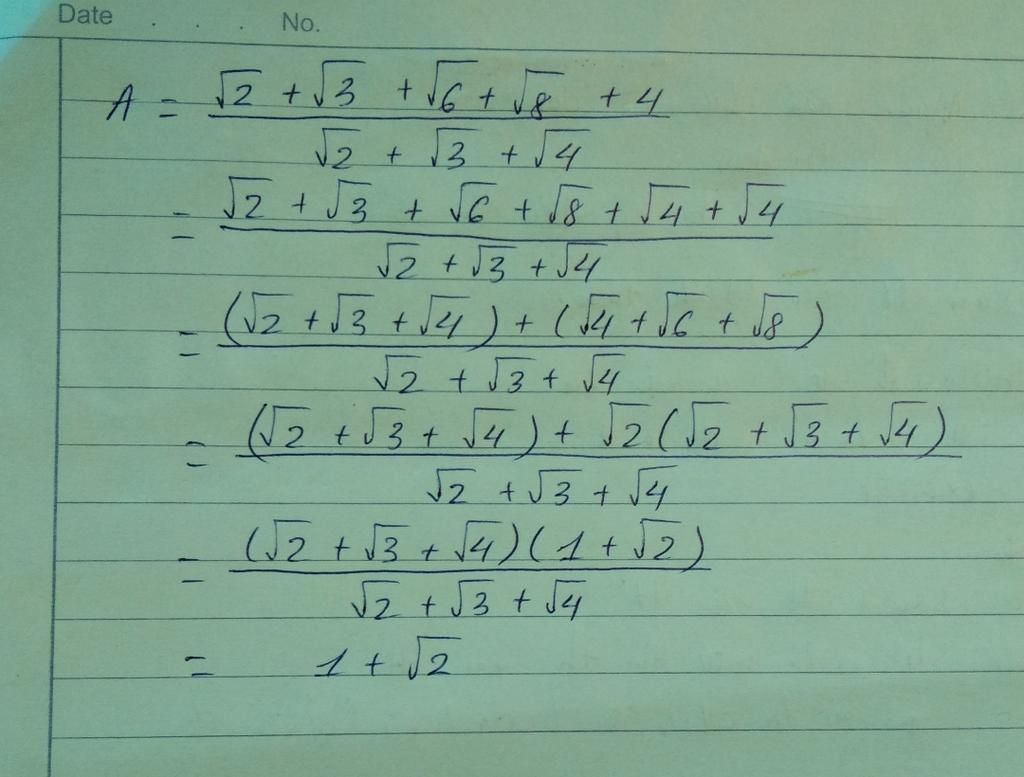 Date . . . No.
A = (√2 + √3 + √6 + √8 + 4) / (√2 + √3 + √4)
= (√2 + √3 + √6 + √8 + √4 + √4) / (√2 + √3 + √4)
= ((√2 + √3 + √4) + (√4 + √6 + √8)) / (√2 + √3 + √4)
= ((√2 + √3 + √4) + √2(√2 + √3 + √4)) / (√2 + √3 + √4)
= ((√2 + √3 + √4)(1 + √2)) / (√2 + √3 + √4)
= 1 + √2